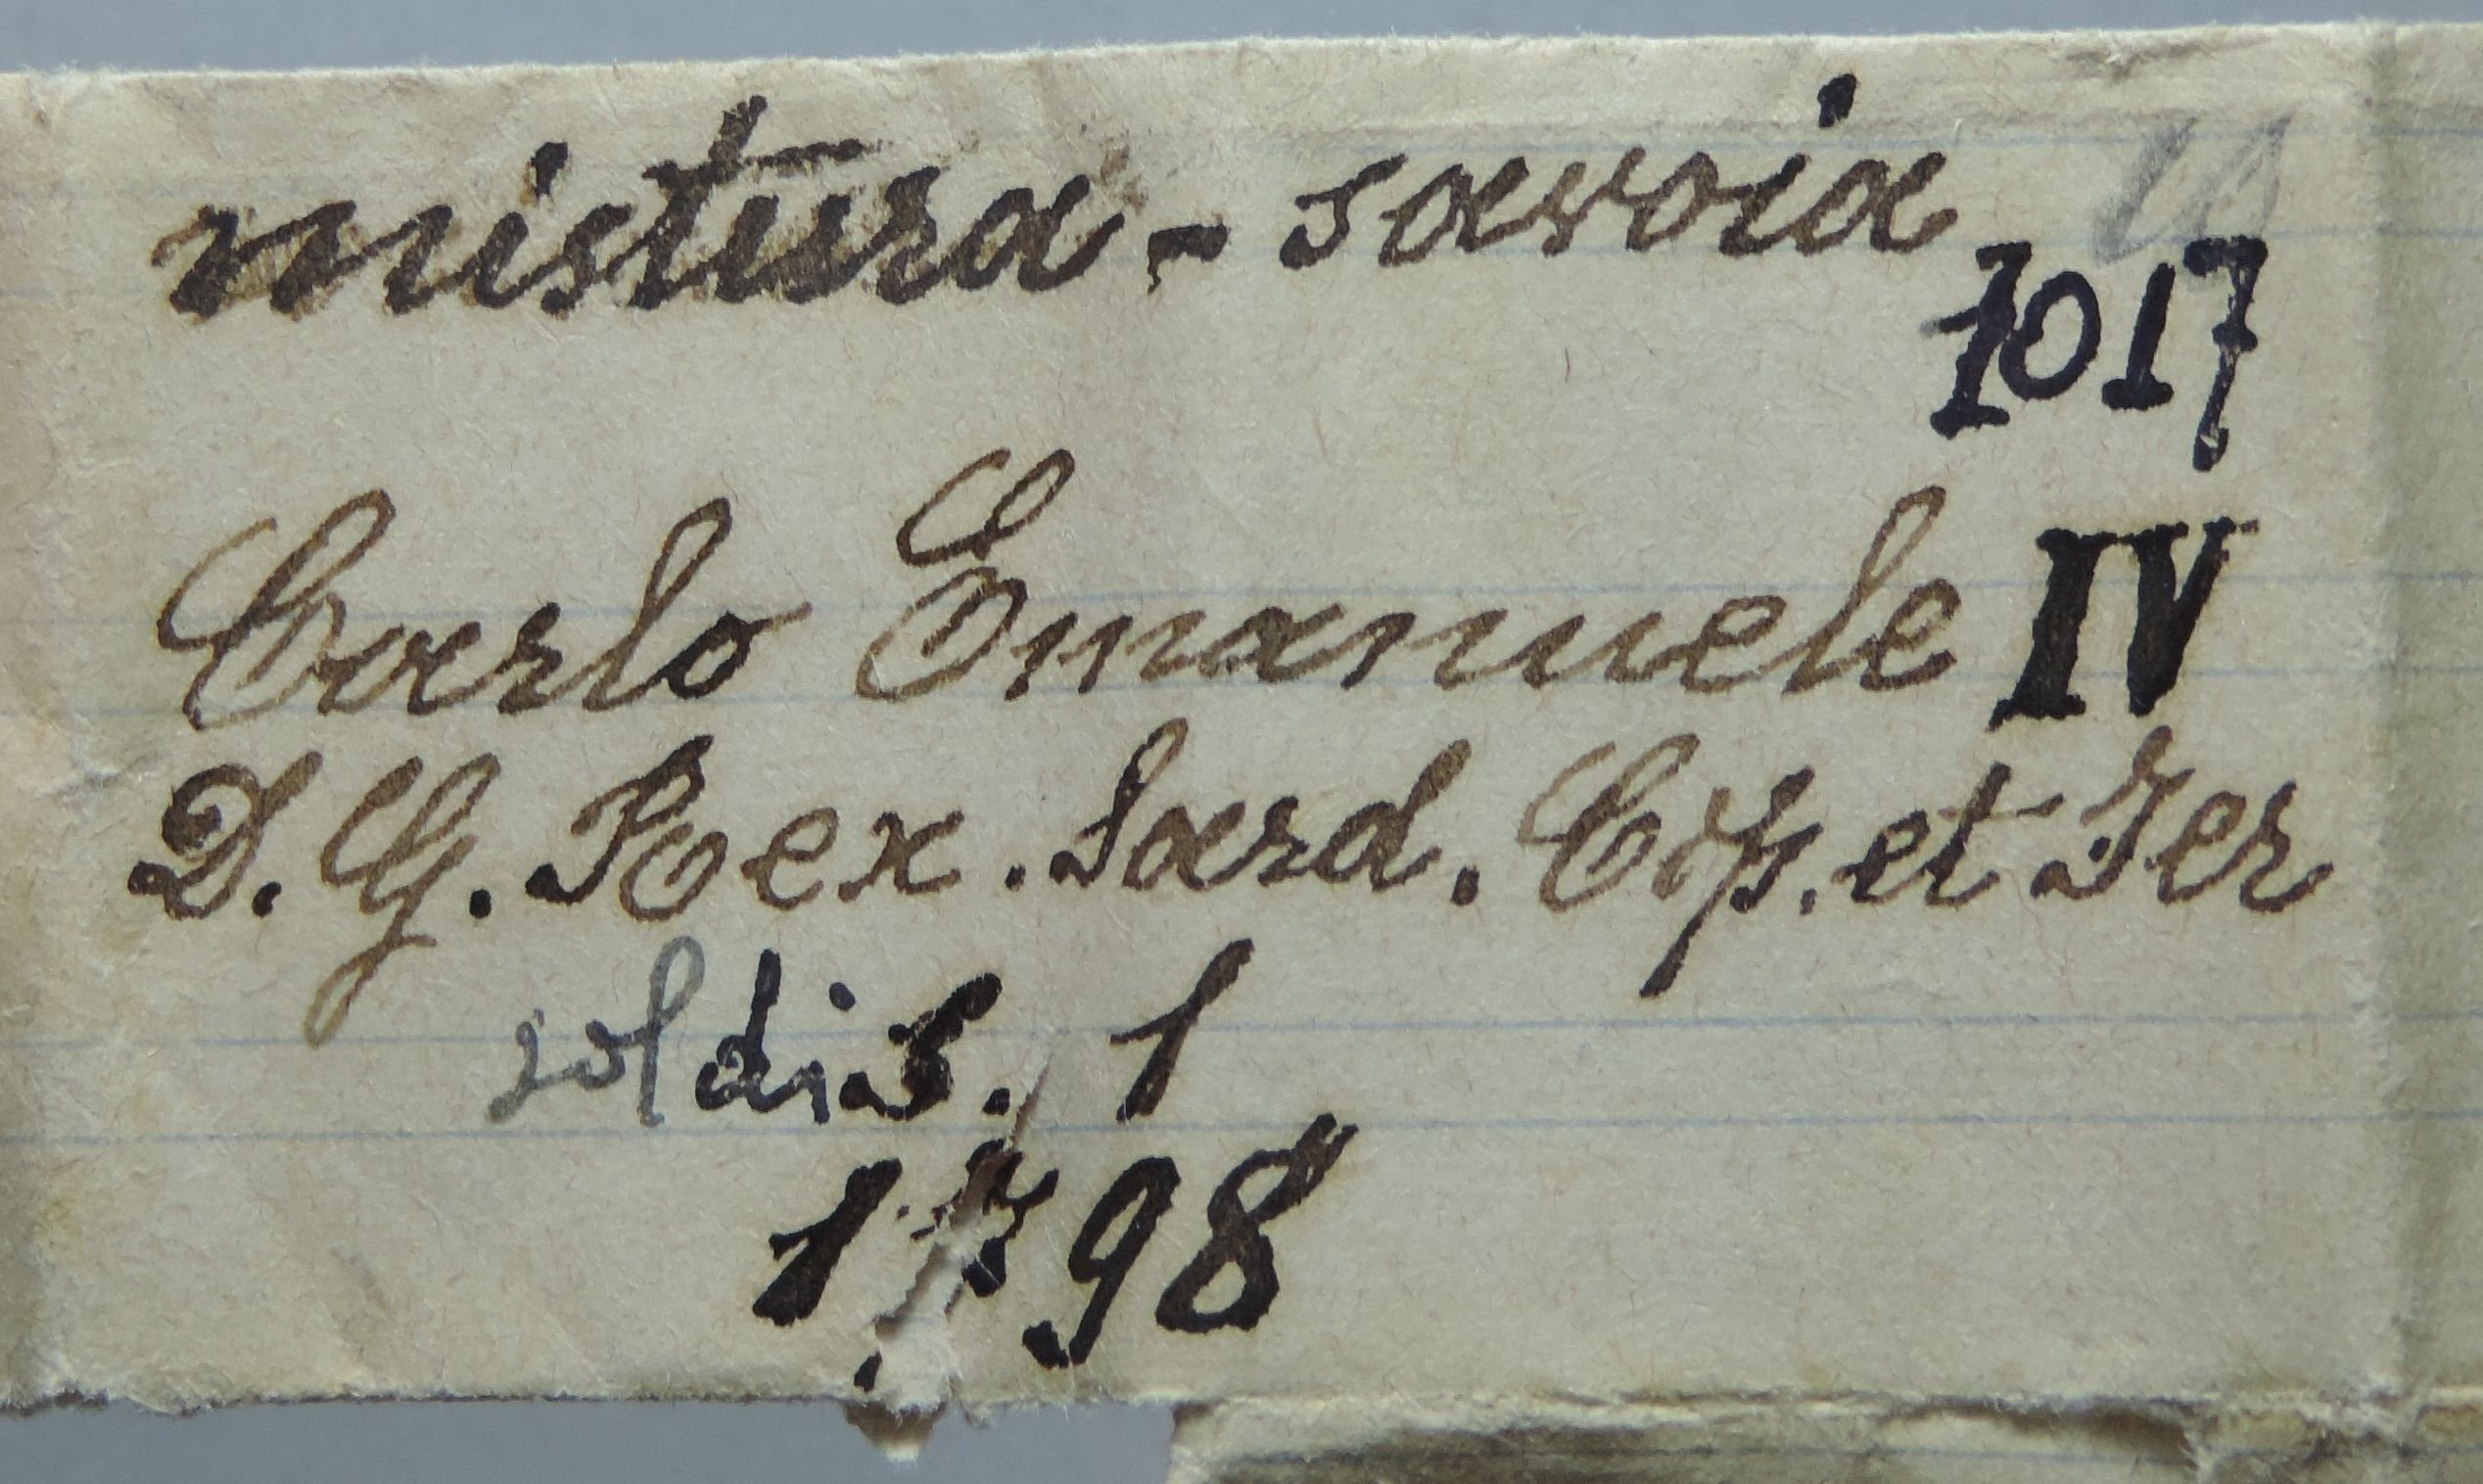 mistura - savoia
1017
Carlo Emanuele IV
D. G. Rex. Sard. Cip. et Ier
soldi s. 1
1798